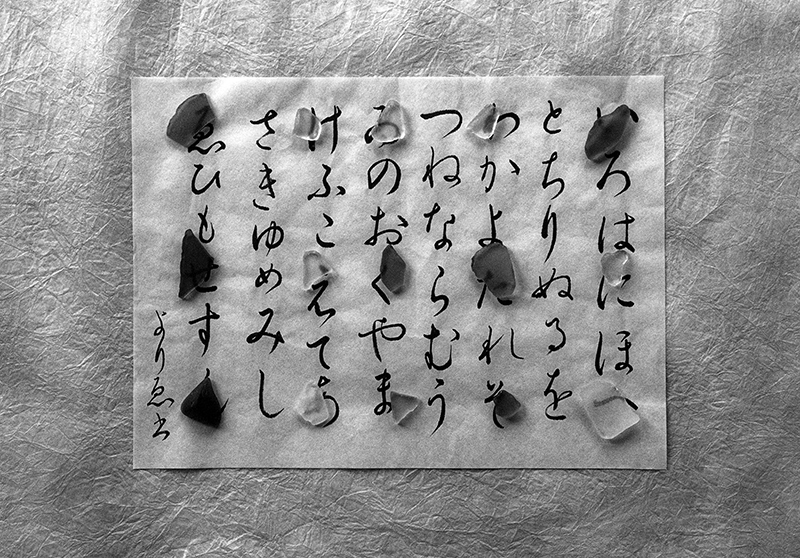 いろはにほへ
とちりぬるを
わかよたれそ
つねならむう
ゐのおくやま
けふこえてあ
さきゆめみし
ゑひもせすん
よりゑ书